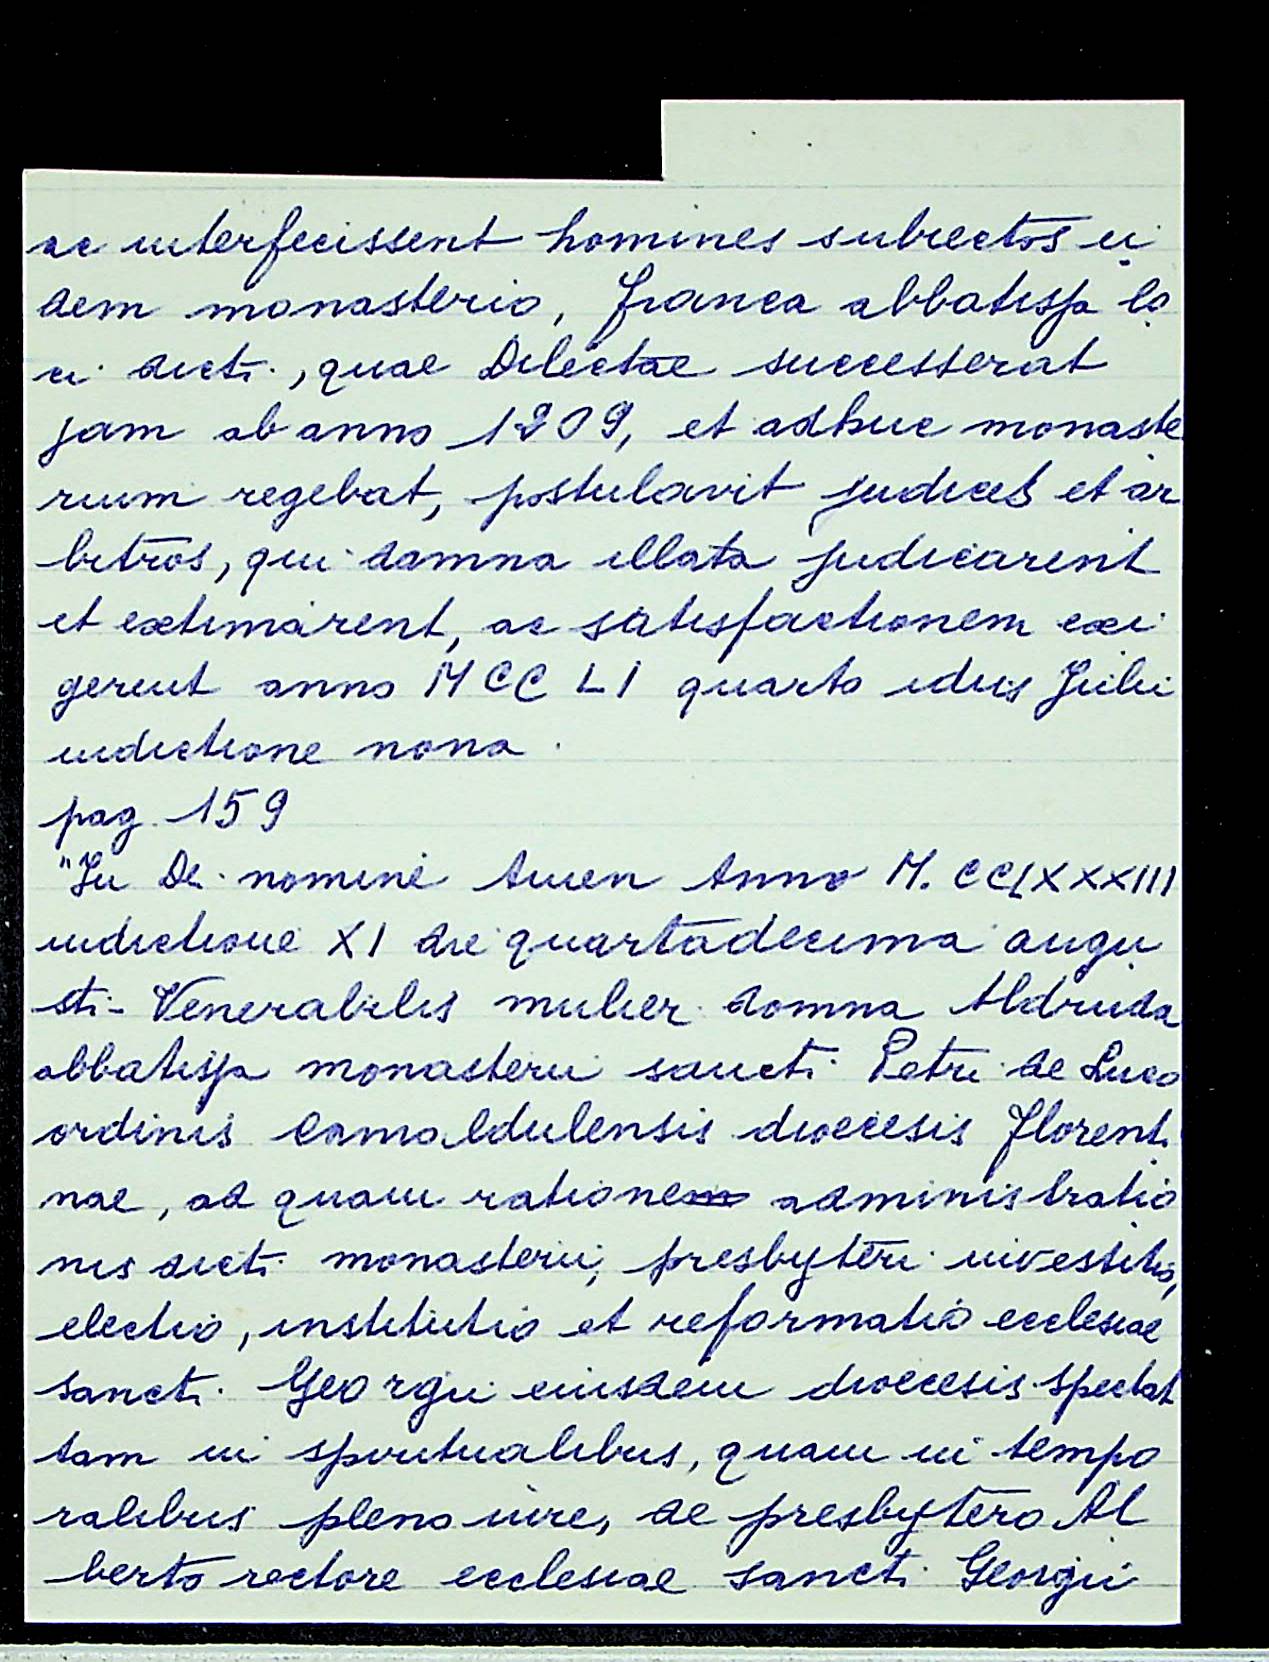 ac interfecissent homines subiectos ei
dem monasterio, Franca abbatissa lo
ci dicti, quae Dilectae successerat
jam ab anno 1209, et adhuc monaste
rium regebat, postulavit judices et ar
bitros, qui damna illata judicarent
et extimarent, ac satisfactionem exi
gerent anno MCCLI quarto idus Julii
indictione nona.
pag. 159
"In Dei nomine Amen Anno M. CCLXXXIII
indictione XI die quartadecima augu
sti - Venerabilis mulier domna Aldruda
abbatissa monasterii sancti Petri de Luco
ordinis Camaldulensis dioecesis Florenti
nae, ad quam ratione administratio
nis dicti monasterii, presbyteri investitio,
electio, institutio et reformatio ecclesiae
sancti Georgii eiusdem dioecesis spectat
tam in spiritualibus, quam in tempo
ralibus pleno iure, de presbytero Al
berto rectore ecclesiae sancti Georgii